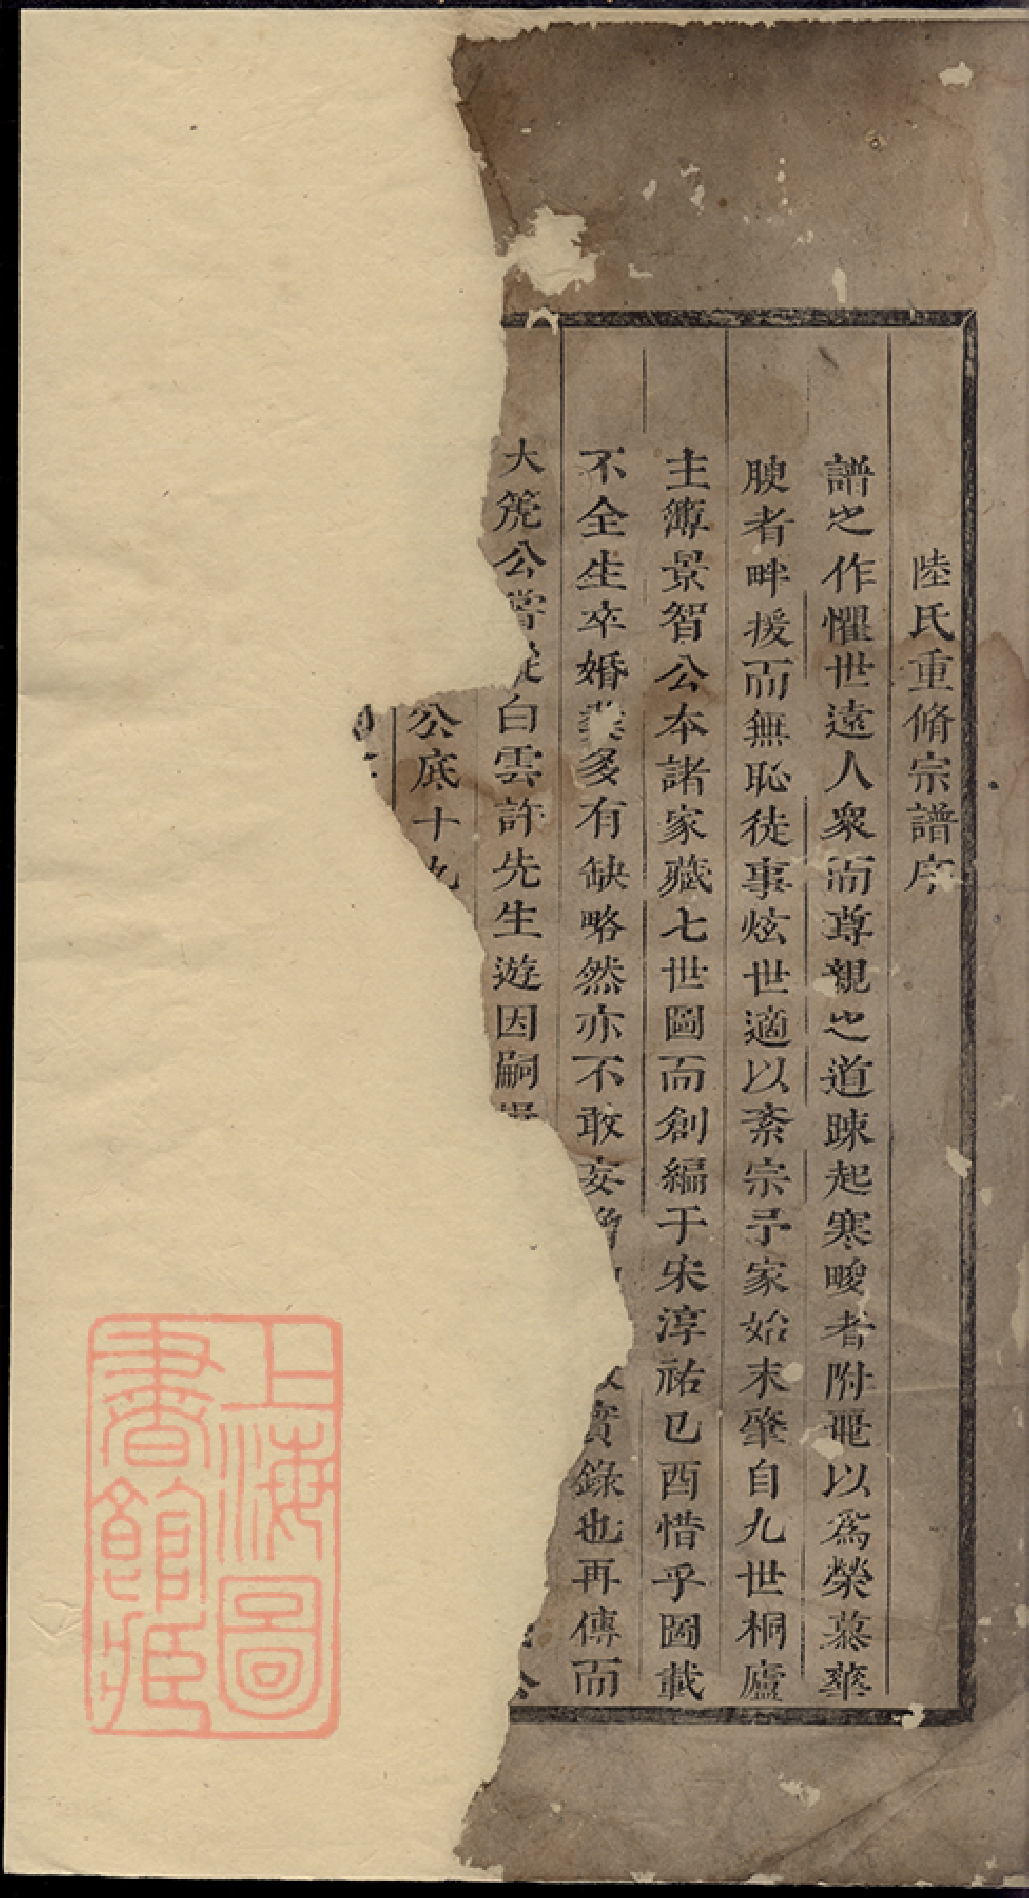 陸氏重脩宗譜序
譜之作懼世遠人衆而尊親之道踈起寒畯者附飛以爲榮慕華
腴者畔援而無恥徒事炫世適以紊宗予家始末肇自九世桐廬
主簿景智公本諸家藏七世圖而創編于宋淳祐己酉惜乎圖載
不全生卒婚葬多有缺略然亦不敢妄實錄也再傳而
大箎公嘗從白雲許先生遊因嗣公
公底十九
上海圖
書館藏